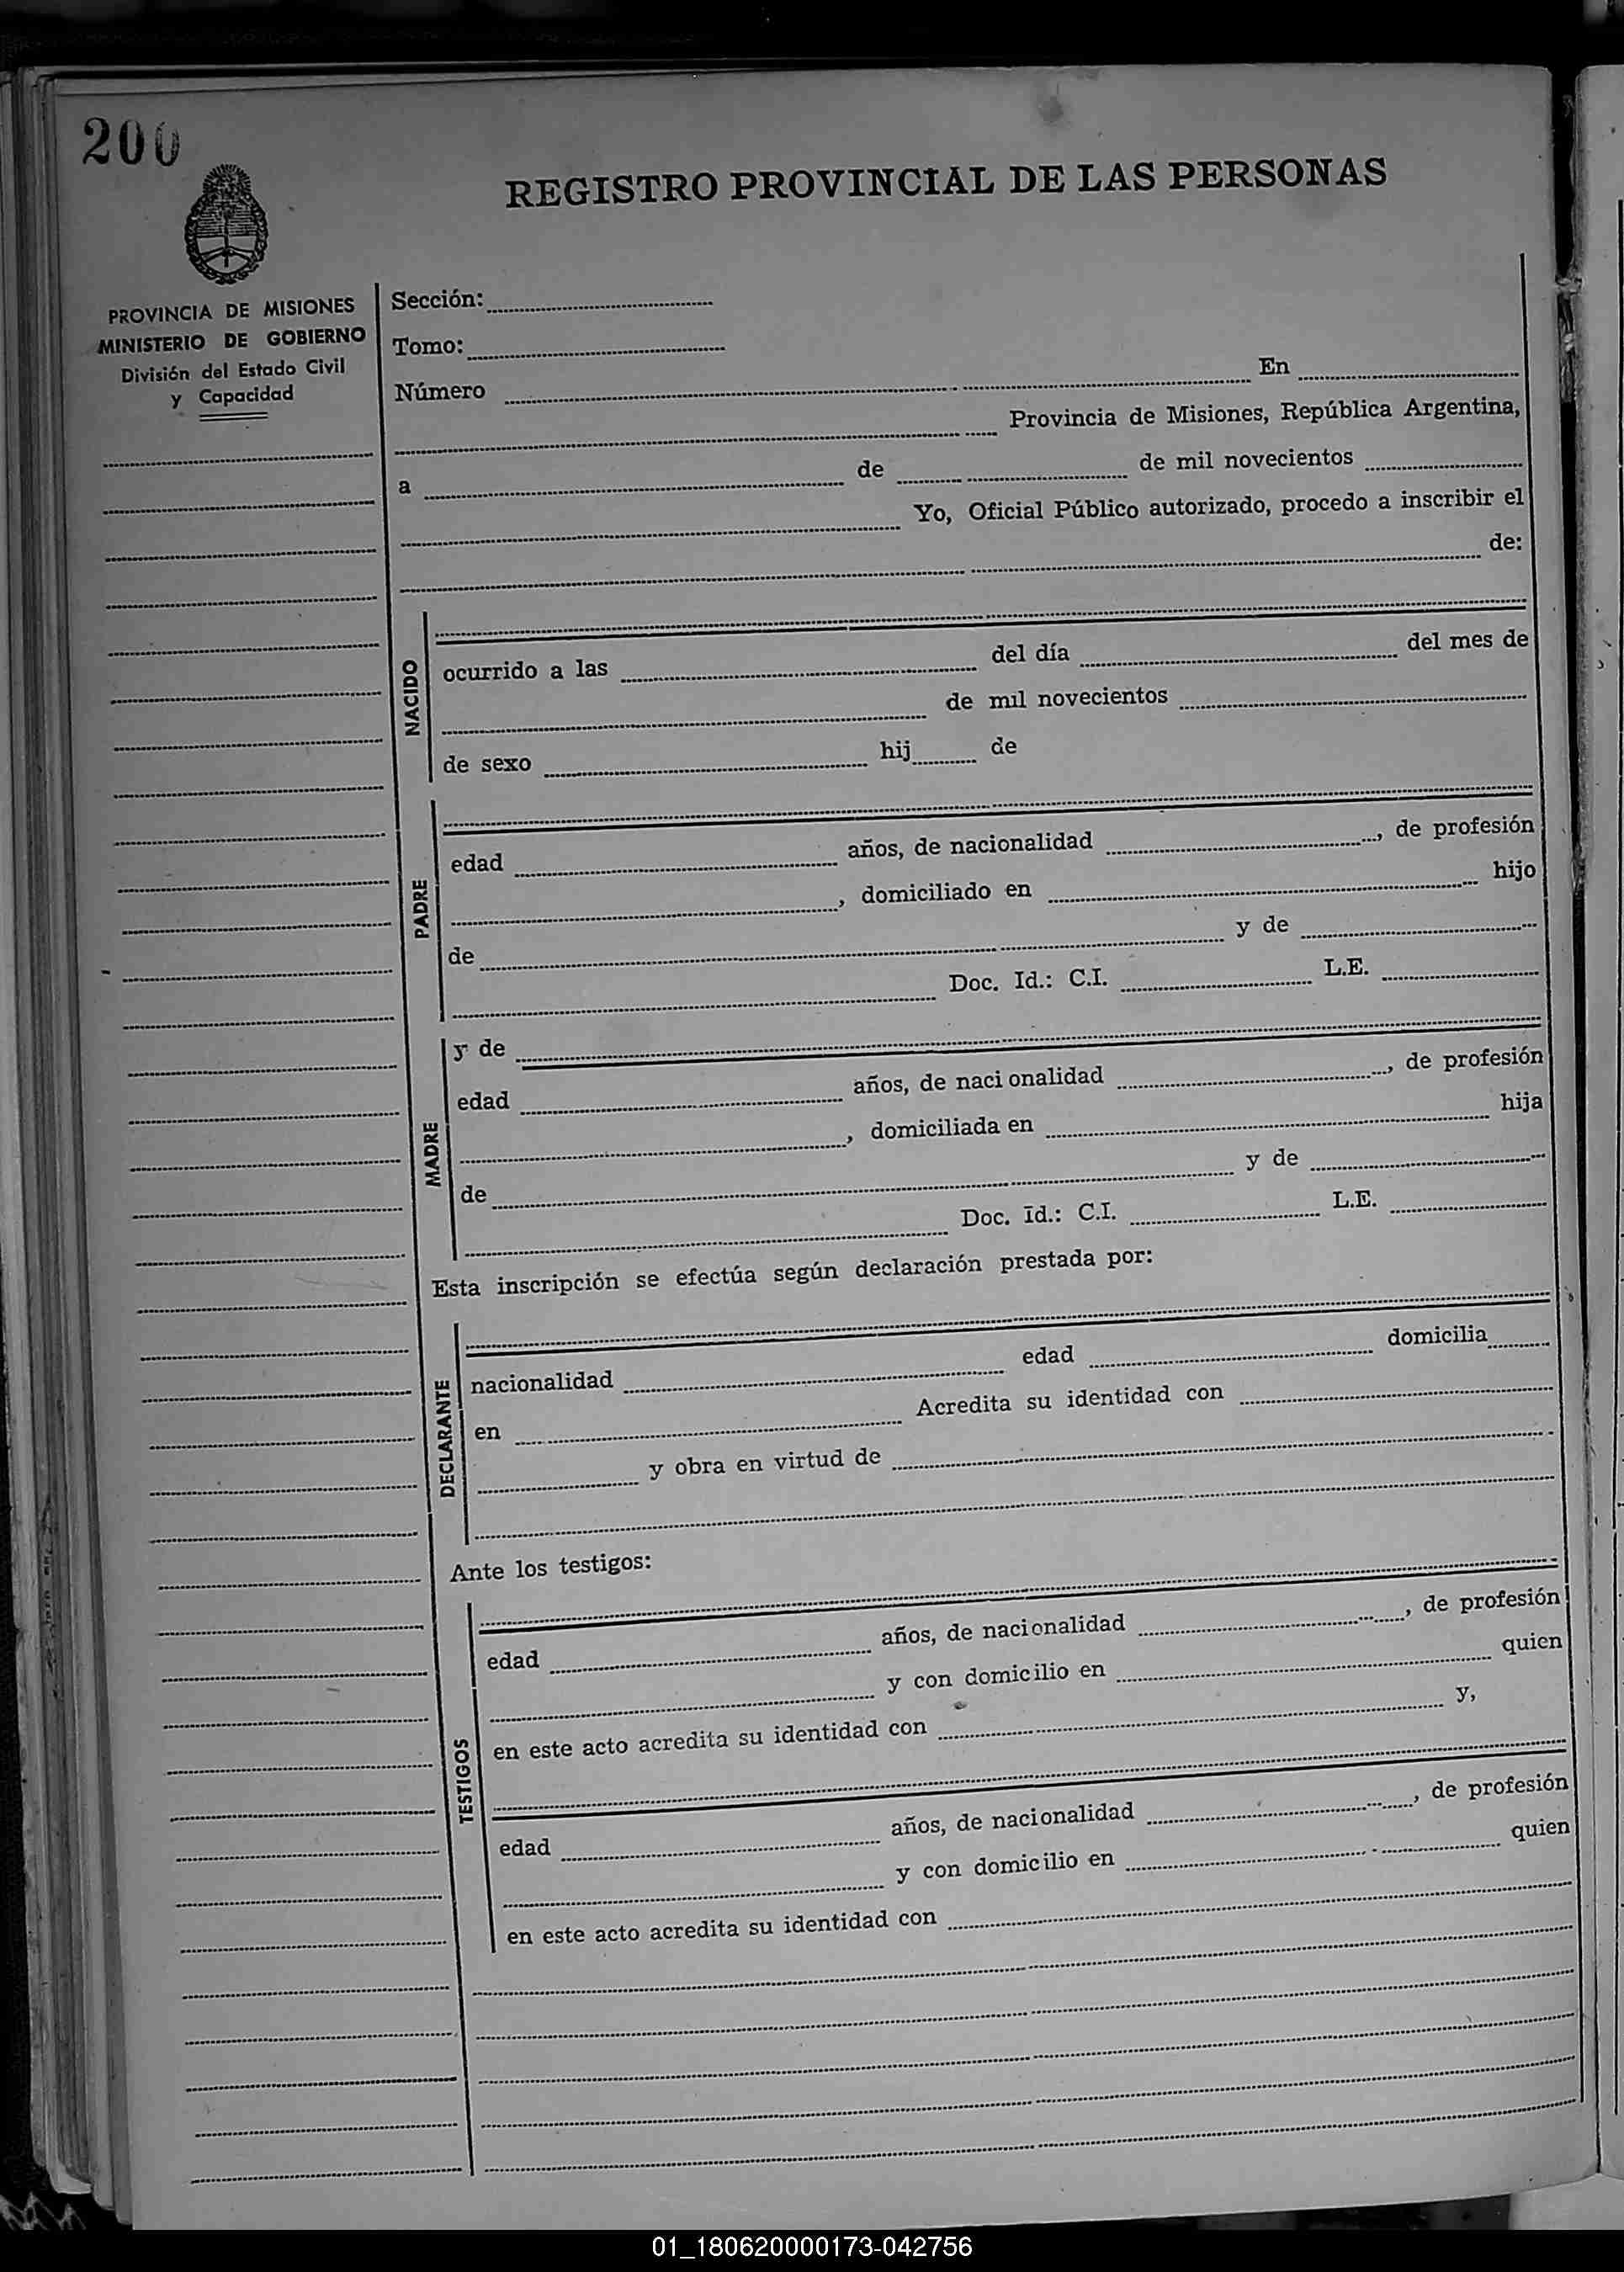 200
REGISTRO PROVINCIAL DE LAS PERSONAS
PROVINCIA DE MISIONES
MINISTERIO DE GOBIERNO
División del Estado Civil
y Capacidad
Sección:
Tomo:
Número En
Provincia de Misiones, República Argentina,
a de de mil novecientos
Yo, Oficial Público autorizado, procedo a inscribir el
de:
NACIDO
ocurrido a las del día del mes de
de mil novecientos
de sexo hij de
PADRE
edad años, de nacionalidad , de profesión
, domiciliado en hijo
de y de
Doc. Id.: C.I. L.E.
MADRE
y de
edad años, de nacionalidad , de profesión
, domiciliada en hija
de y de
Doc. Id.: C.I. L.E.
Esta inscripción se efectúa según declaración prestada por:
DECLARANTE
nacionalidad edad domicilia
en Acredita su identidad con
y obra en virtud de
Ante los testigos:
TESTIGOS
edad años, de nacionalidad , de profesión
y con domicilio en quien
en este acto acredita su identidad con y,
edad años, de nacionalidad , de profesión
y con domicilio en quien
en este acto acredita su identidad con
01_180620000173-042756